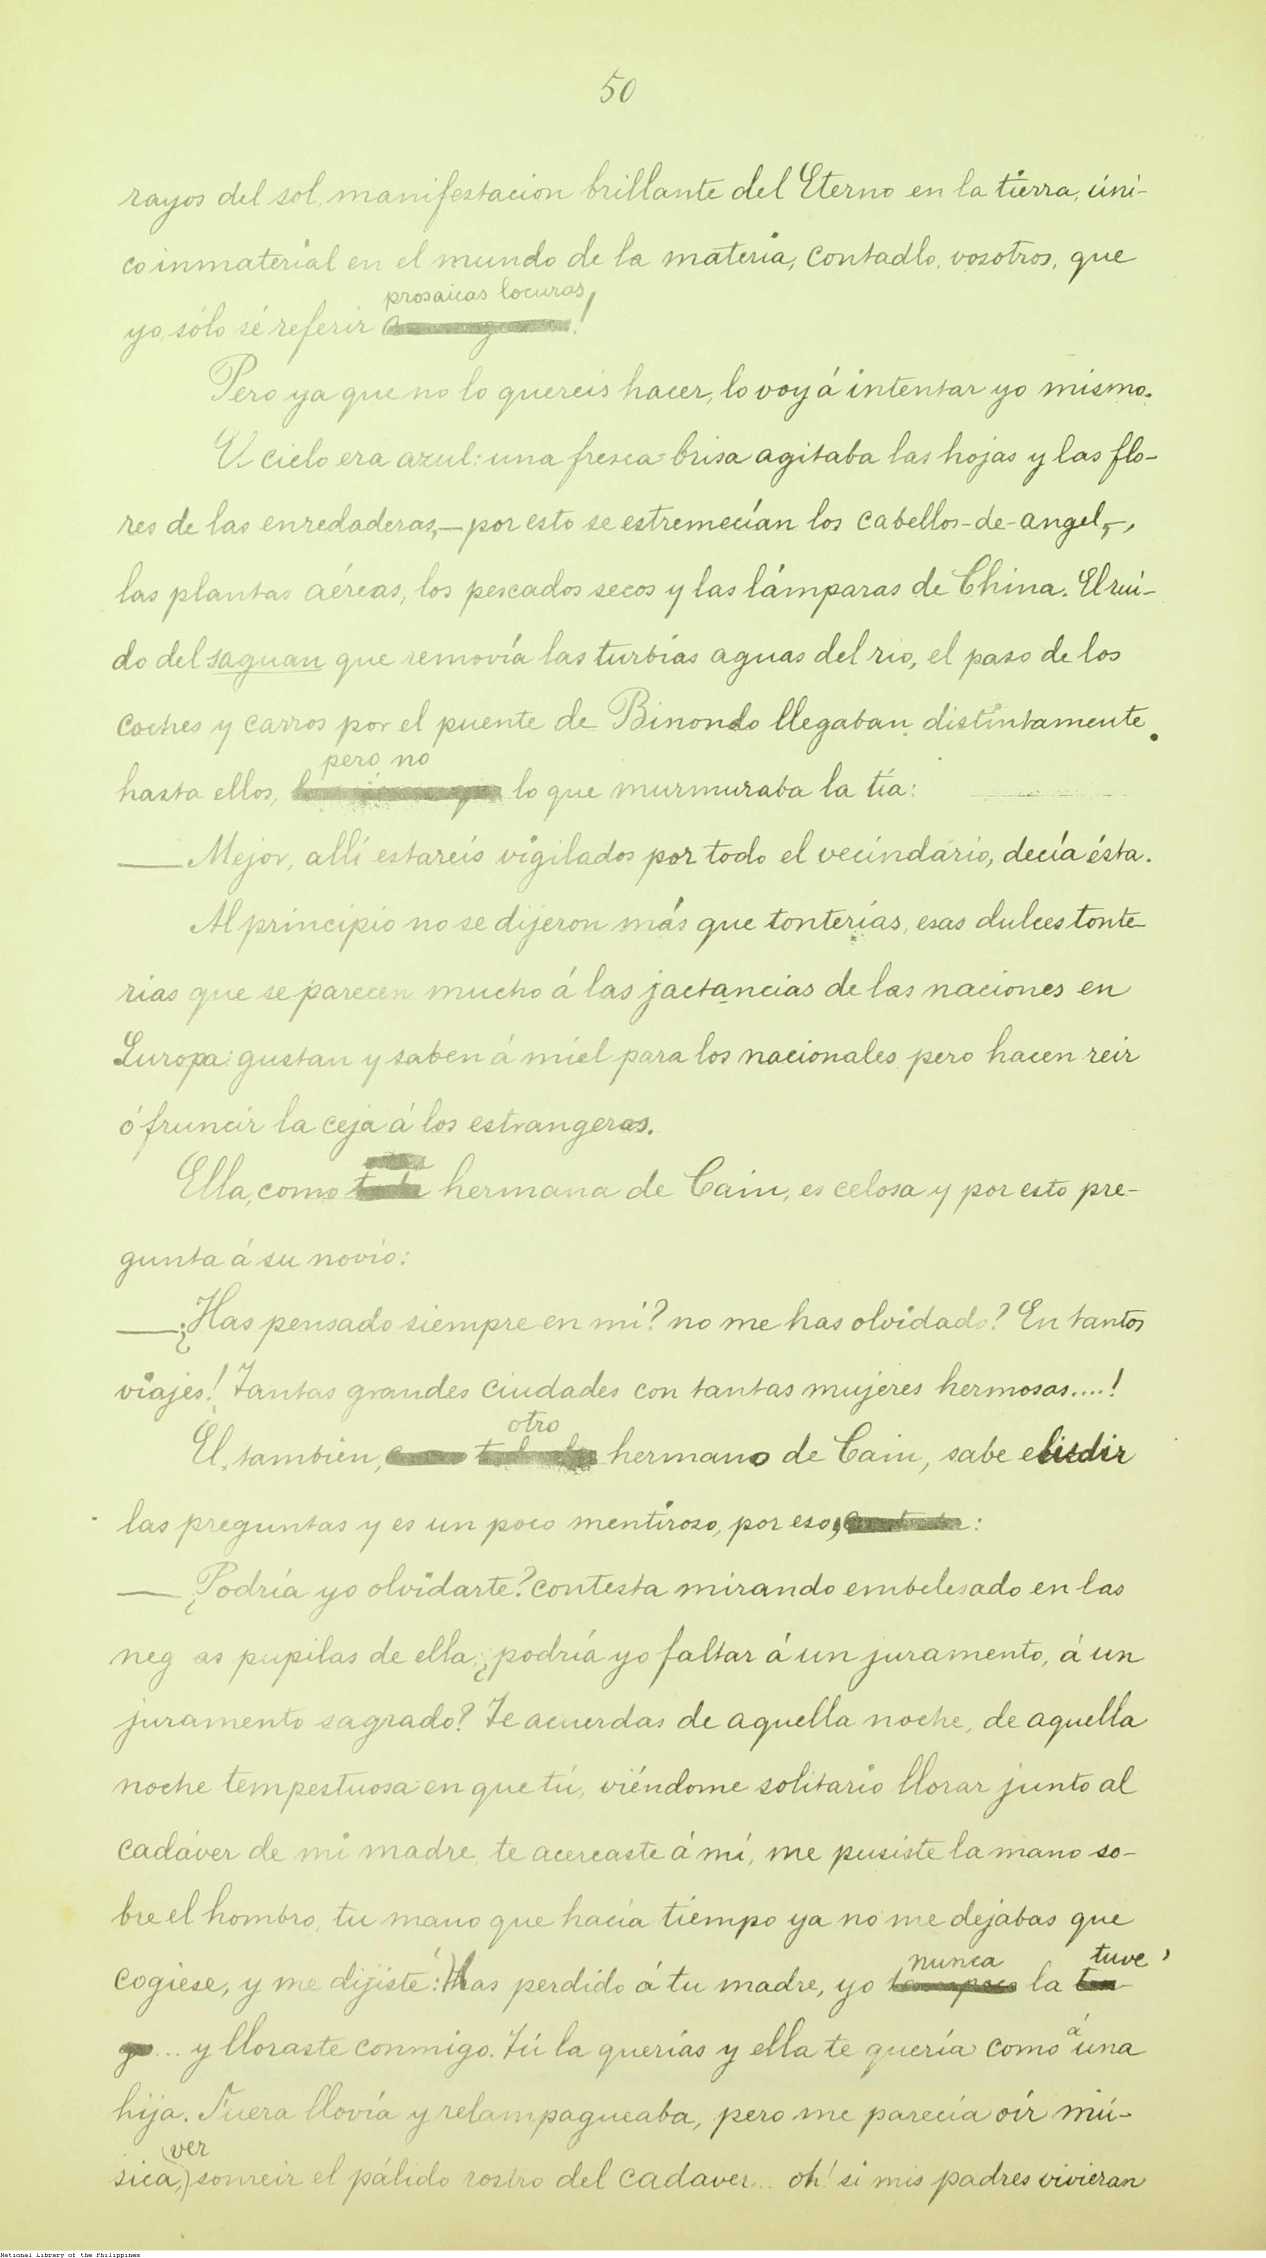 50
rayos del sol, manifestacion brillante del Eterno en la tierra, úni-
co inmaterial en el mundo de la materia, contadlo, vosotros, que
prosaicas locuras!
yo, sólo sé referir !
Pero ya que no lo quereis hacer, lo voy á intentar yo mismo.
El cielo era azul: una fresca brisa agitaba las hojas y las flo-
res de las enredaderas,—por esto se estremecían los cabellos-de-angel,-,
las plantas aéreas, los pescados secos y las lámparas de China. El rui-
do del saguan que removía las turbias aguas del rio, el paso de los
coches y carros por el puente de Binondo llegaban distintamente
pero no
hasta ellos, lo que murmuraba la tía:
— Mejor, allí estareis vigilados por todo el vecindario, decía ésta.
Al principio no se dijeron más que tonterías, esas dulces tonte-
rias que se parecen mucho á las jactancias de las naciones en
Europa: gustan y saben á miel para los nacionales pero hacen reir
ó fruncir la ceja á los estrangeros.
Ella, como hermana de Cain, es celosa y por esto pre-
gunta á su novio:
— ¿Has pensado siempre en mi? no me has olvidado? En tantos
viajes! Tantas grandes ciudades con tantas mujeres hermosas....!
otro
El, tambien, hermano de Cain, sabe eludir
las preguntas y es un poco mentiroso, por eso, :
— ¿Podría yo olvidarte? contesta mirando embelesado en las
neg as pupilas de ella; ¿podría yo faltar á un juramento, á un
juramento sagrado? Te acuerdas de aquella noche, de aquella
noche tempestuosa en que tú, viéndome solitario llorar junto al
cadáver de mi madre, te acercaste á mí, me pusiste la mano so-
bre el hombro, tu mano que hacía tiempo ya no me dejabas que
nunca tuve,
cogiese, y me dijiste: Has perdido á tu madre, yo la
... y lloraste conmigo. Tú la querías y ella te quería como á una
hija. Fuera llovía y relampagueaba, pero me parecía oír mú-
ver
sica, sonreir el pálido rostro del cadaver... oh! si mis padres vivieran
National Library of the Philippines